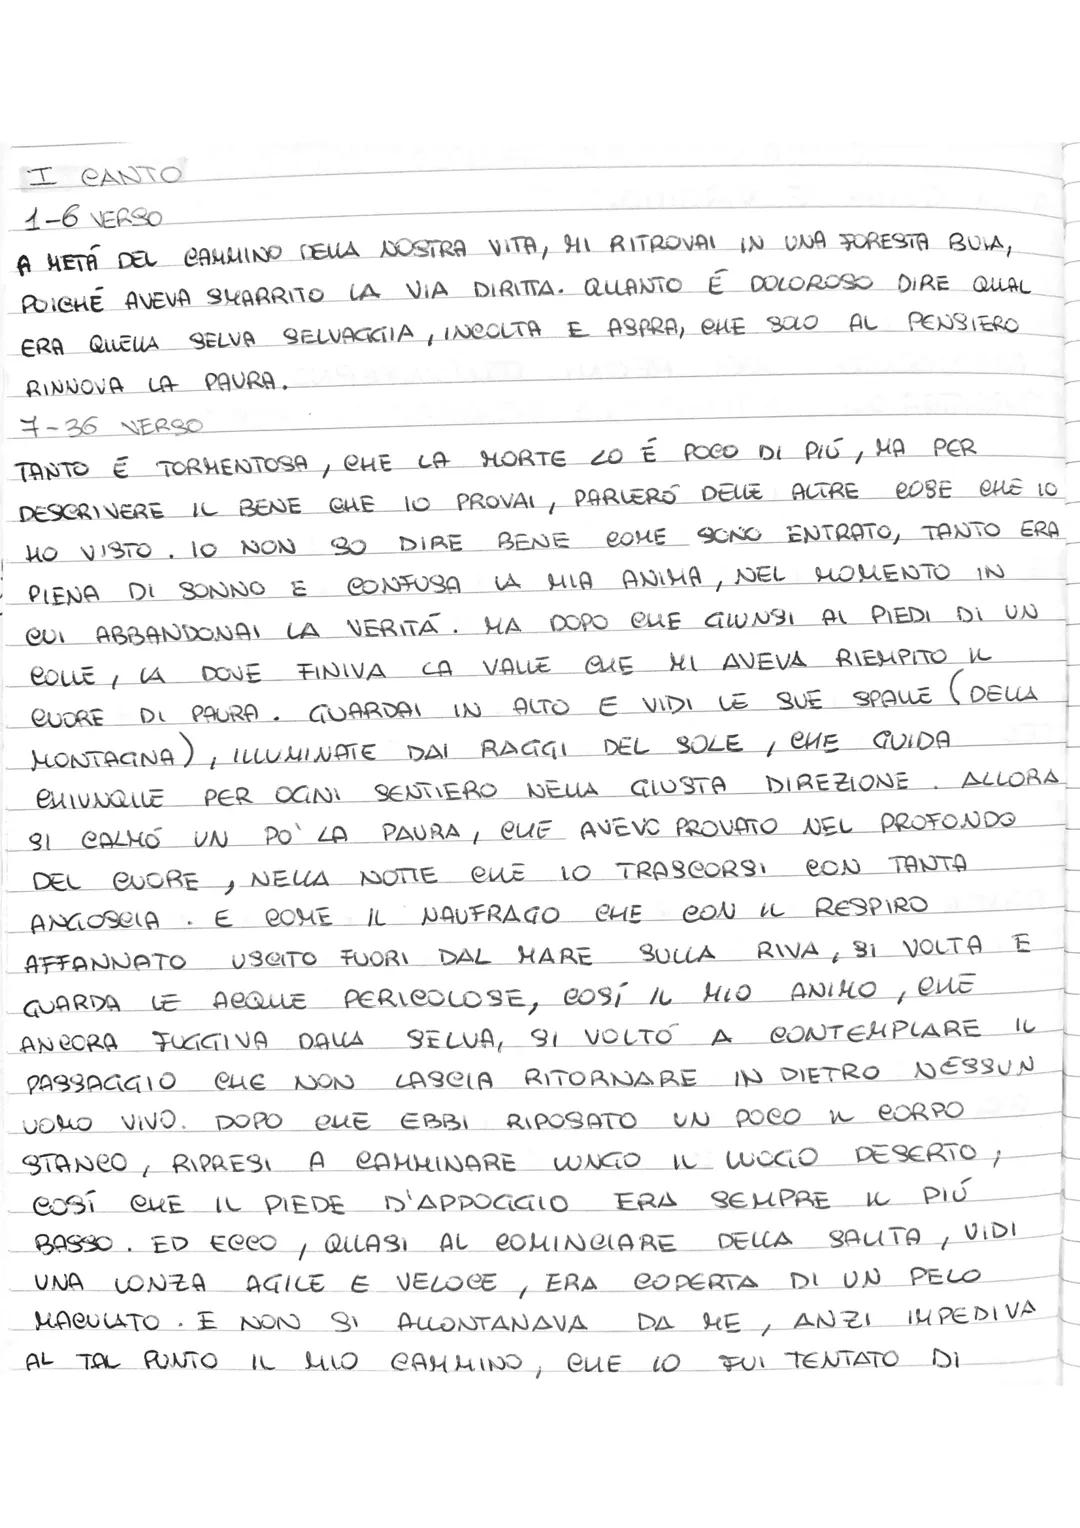 I CANTO
1-6 VERSO
A METÁ DEL CAMMINO DELLA NOSTRA VITA, MI RITROVAI IN UNA FORESTA BUIA,
POICHÉ AVEVA SMARRITO LA VIA DIRITTA. QUANTO É DOLOROSO DIRE QUAL
ERA QUELLA SELVA SELVAGGIA, INCOLTA E ASPRA, CHE SOLO AL PENSIERO
RINNOVA LA PAURA.
7-36 VERSO
TANTO É TORMENTOSA, CHE LA MORTE LO É POCO DI PIÚ, MA PER
DESCRIVERE IL BENE CHE IO PROVAI, PARLERÓ DELLE ALTRE COSE CHE IO
HO VISTO. IO NON SO DIRE BENE COME SONO ENTRATO, TANTO ERA
PIENA DI SONNO E CONFUSA LA MIA ANIMA, NEL MOMENTO IN
CUI ABBANDONAI LA VERITÁ. MA DOPO CHE GIUNSI AI PIEDI DI UN
COLLE, LA DOVE FINIVA LA VALLE CHE MI AVEVA RIEMPITO IL
CUORE DI PAURA. GUARDAI IN ALTO E VIDI LE SUE SPALLE (DELLA
MONTAGNA), ILLUMINATE DAI RAGGI DEL SOLE, CHE GUIDA
CHIUNQUE PER OGNI SENTIERO NELLA GIUSTA DIREZIONE. ALLORA
SI CALMÓ UN PO' LA PAURA, CHE AVEVO PROVATO NEL PROFONDO
DEL CUORE, NELLA NOTTE CHE IO TRASCORSI CON TANTA
ANGOSCIA. E COME IL NAUFRAGO CHE CON IL RESPIRO
AFFANNATO USCITO FUORI DAL MARE SULLA RIVA, SI VOLTA E
GUARDA LE ACQUE PERICOLOSE, COSÍ IL MIO ANIMO, CHE
ANCORA FUGGIVA DALLA SELVA, SI VOLTÓ A CONTEMPLARE IL
PASSAGGIO CHE NON LASCIA RITORNARE IN DIETRO NESSUN
UOMO VIVO. DOPO CHE EBBI RIPOSATO UN POCO IL CORPO
STANCO, RIPRESI A CAMMINARE LUNGO IL LUOGO DESERTO,
COSÍ CHE IL PIEDE D'APPOGGIO ERA SEMPRE IL PIÚ
BASSO. ED ECCO, QUASI AL COMINCIARE DELLA SALITA, VIDI
UNA LONZA AGILE E VELOCE, ERA COPERTA DI UN PELO
MACULATO. E NON SI ALLONTANAVA DA ME, ANZI IMPEDIVA
AL TAL PUNTO IL MIO CAMMINO, CHE IO FUI TENTATO DI